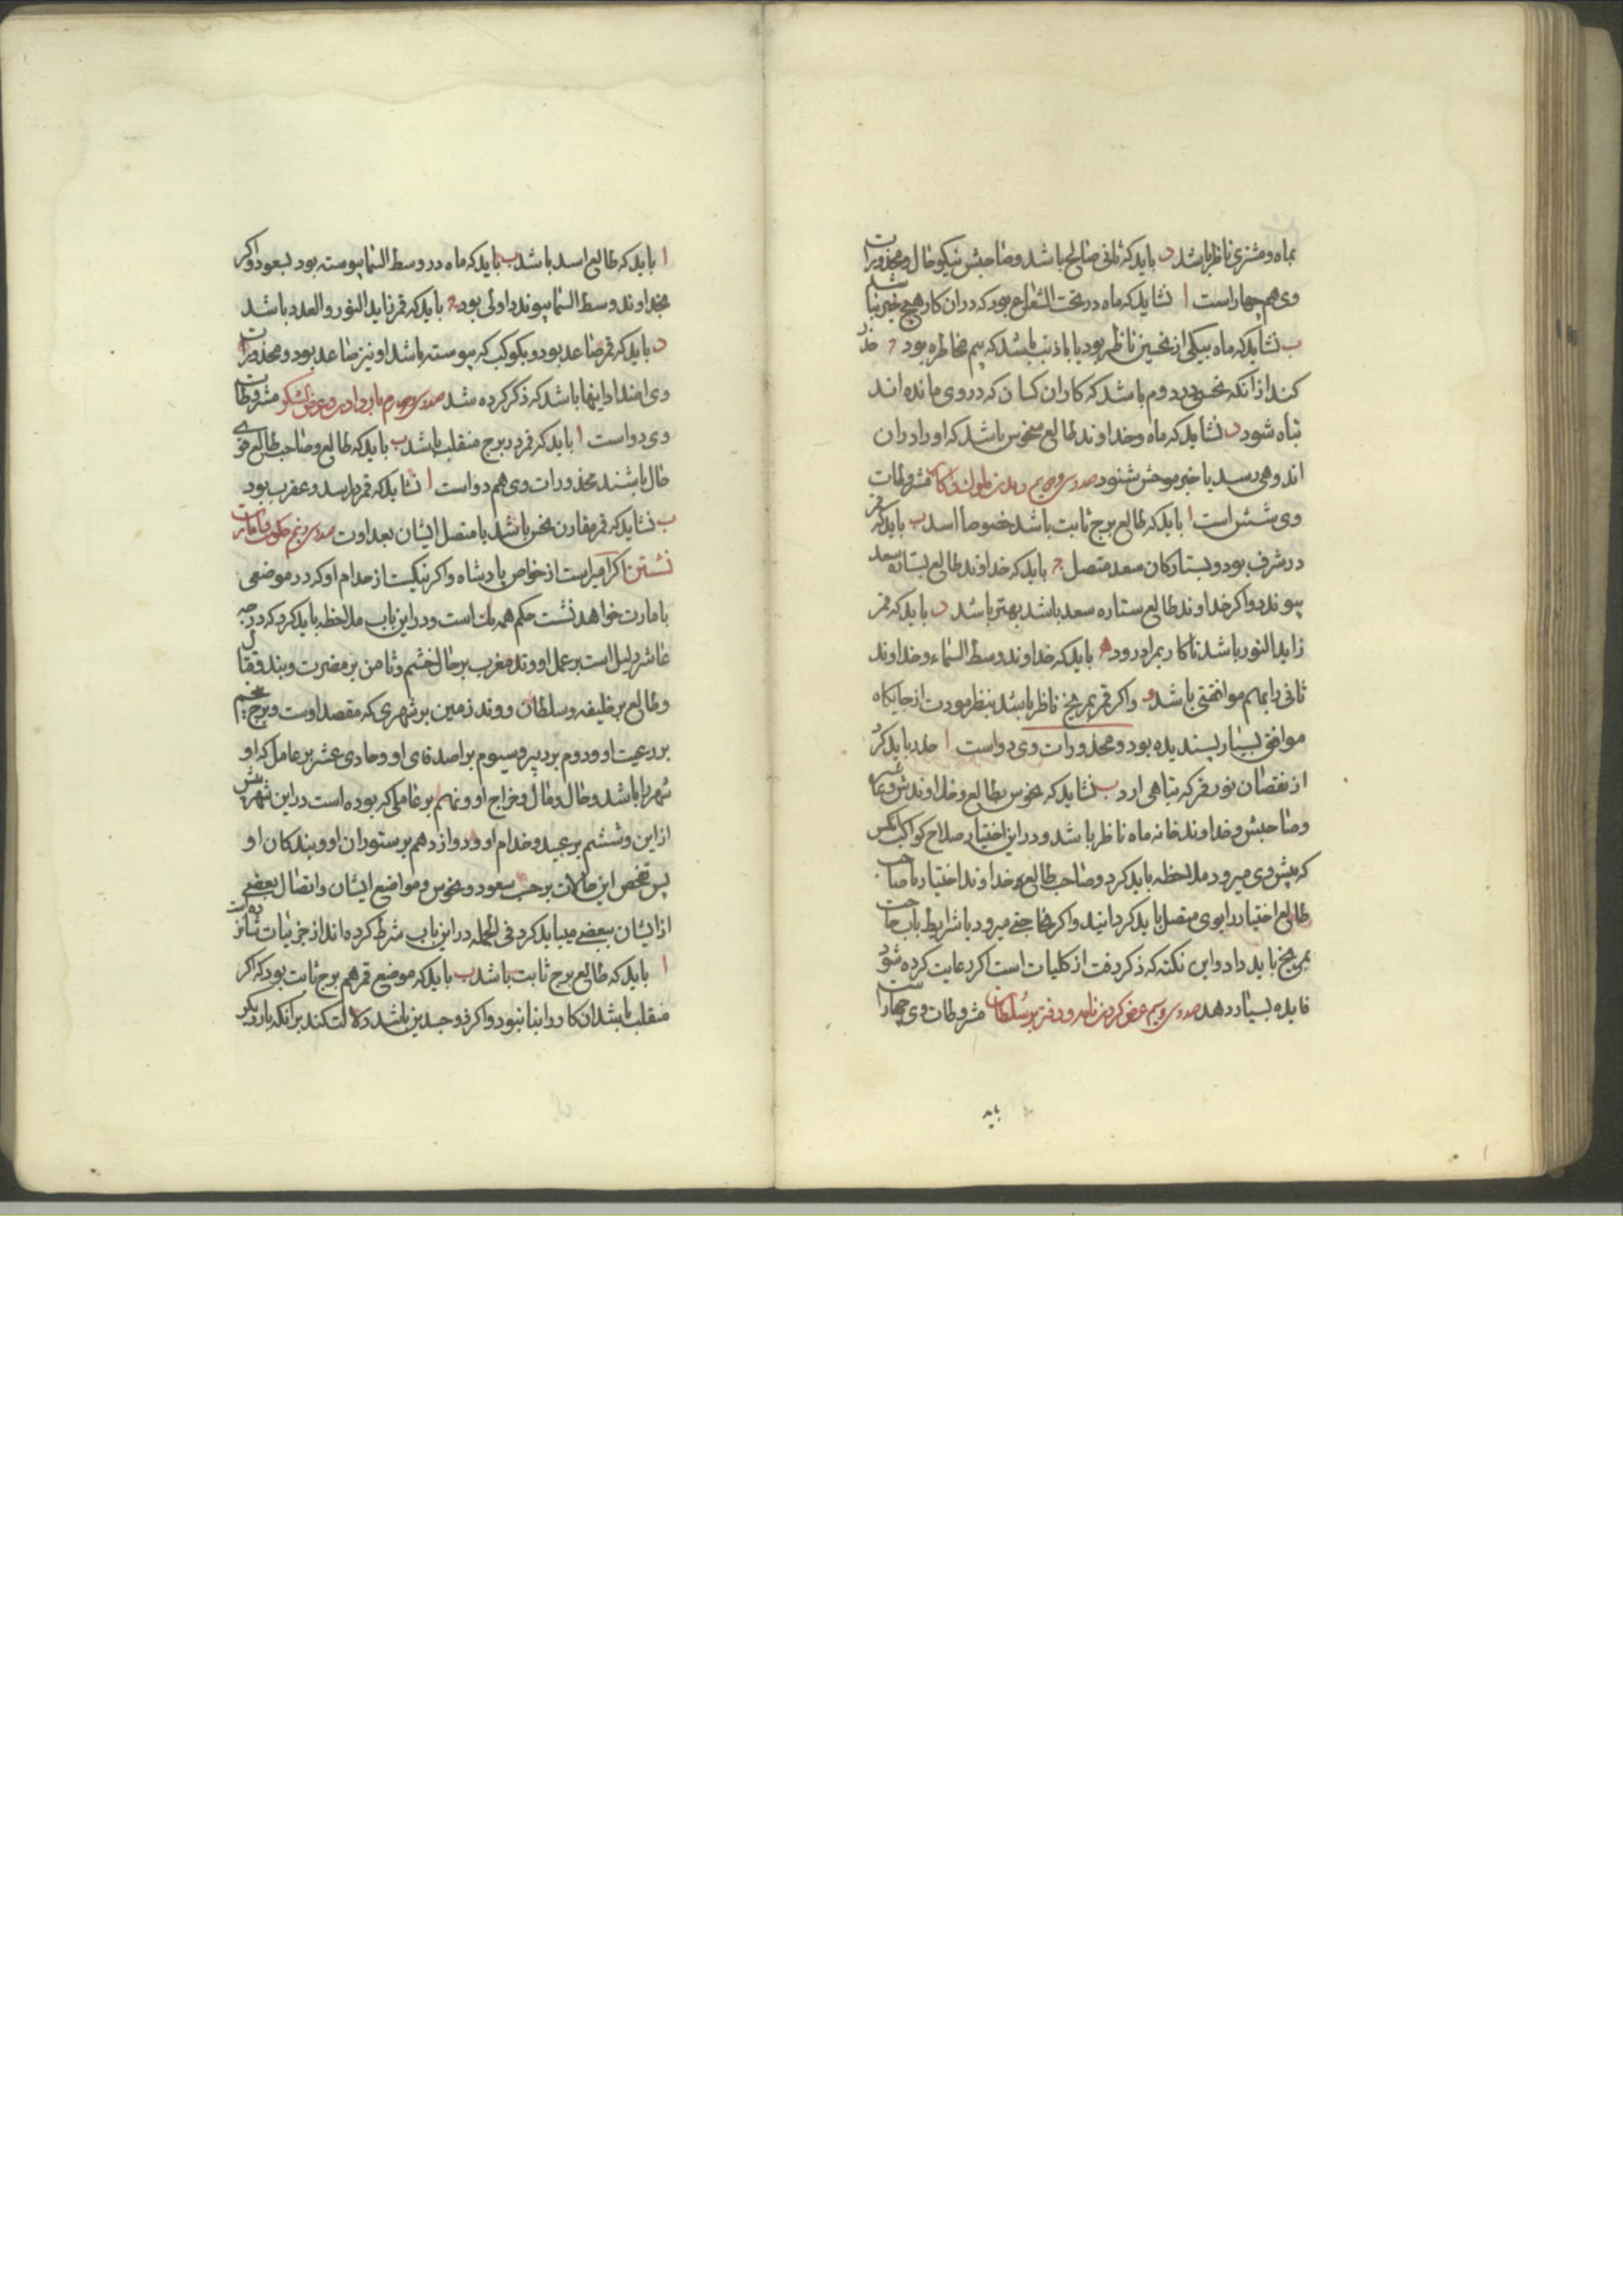 بماه و مشتری ناظر باشد د باید که ثانی صالح باشد و صاحبش نیکو حال و محذورات
وی هم چهار است ا نشاید که ماه در تحت الشعاع بود که در ان کار هیچ خیر نباشد
ب نشاید که ماه بیکی از نحسین ناظر بود یا با ذنب باشد که بیم مخاطره بود ج حذر
کند از انکه نحسی در دوم باشد که کار ان کسان که در وی مانده اند
تباه شود د نشاید که ماه و خداوند طالع منحوس باشد که او را دران
اندوهی رسد یا خبر موحش شنود دیدن ملوک و اکابر مشروطات
وی شش است ا باید که طالع برج ثابت باشد خصوصا اسد ب باید که قمر
در شرف بود و بستارکان سعد متصل ج باید که خداوند طالع بستاره سعد
پیوندد و اکر خداوند طالع ستاره سعد باشد بهتر باشد د باید که قمر
زاید النور باشد تا کار بمراد رود ه باید که خداوند وسط السماء و خداوند
ثانی را بماهم موافقتی باشد و و اکر قمر بمریخ ناظر باشد بنظر مودت از جایکاه
موافق بسیار پسندیده بود و محذورات وی دو است ا حذر باید کرد
از نقصان نور قمر که تباهی ارد ب نشاید که نحوس بطالع و خداوندش و بماه
و صاحبش و خداوند خانه ماه ناظر باشد و در این اختیار صلاح کواکب انکس
که پیش وی میرود ملاحظه باید کرد و صاحب طالع و خداوند اختیار با صاحب
طالع اختیار را بوی متصل باید کردانید و اکر بحاجتی میرود با شرایط باب حاجت
بمریخ باید داد و این نکته که ذکر رفت از کلیات است اکر رعایت کرده شود
فایده بسیار دهد عرض کردن نامه و دفتر بر سلطان مشروطات وی چهار است
باید
ا باید که طالع اسد باشد ب باید که ماه در وسط السما پیوسته بود بسعود و اکر
بخداوند وسط السما پیوندد اولی بود ج باید که قمر زاید النور و العدد باشد
د باید که قمر صاعد بود و بکوکب که پیوسته باشد او نیز صاعد بود و محذورات
وی اضداد اینها باشد که ذکر کرده شد عرض لشکر مشروطات
وی دو است ا باید که قمر در برج منقلب باشد ب باید که طالع و صاحب طالع قوی
حال باشند محذورات وی هم دو است ا نشاید که قمر در اسد و عقرب بود
ب نشاید که قمر مقارن نحس باشد یا متصل ایشان بعداوت
نشستن اکر امیر است از خواص پادشاه و اکر نیکیست از خدام او که در موضعی
بامارت خواهد نشست حکم همه یک است و در این باب ملاحظه باید کرد که درجه
عاشر دلیل است بر عمل او و وتد مغرب بر حال خشم و ثامن بر مضرت و بند و قتال
و طالع بر خلیفه و سلطان و وتد زمین بر شهری که مقصد اوست و برج پنجم
بر رعیت او و دوم بر دبیر و سیوم بر اصدقای او و حادی عشر بر عامل که او
شهر را باشد و حال و مال و خراج او و نهم بر عاملی که بوده است در این شهر پیش
از این و ششم بر عبید و خدام او و دوازدهم بر ستوران او و بندکان او
پس تفحص این حالات بر حسب سعود و نحوس و مواضع ایشان و اتصال بعضی
از ایشان ببعضی میباید کرد فی الجمله در این باب شرط کرده اند از جزئیات
ا باید که طالع برج ثابت باشد ب باید که موضع قمر هم برج ثابت بود که اکر
منقلب باشد ان کار را بقا نبود و اکر ذو جسدین باشد دلالت کند بر انکه بار دیکر